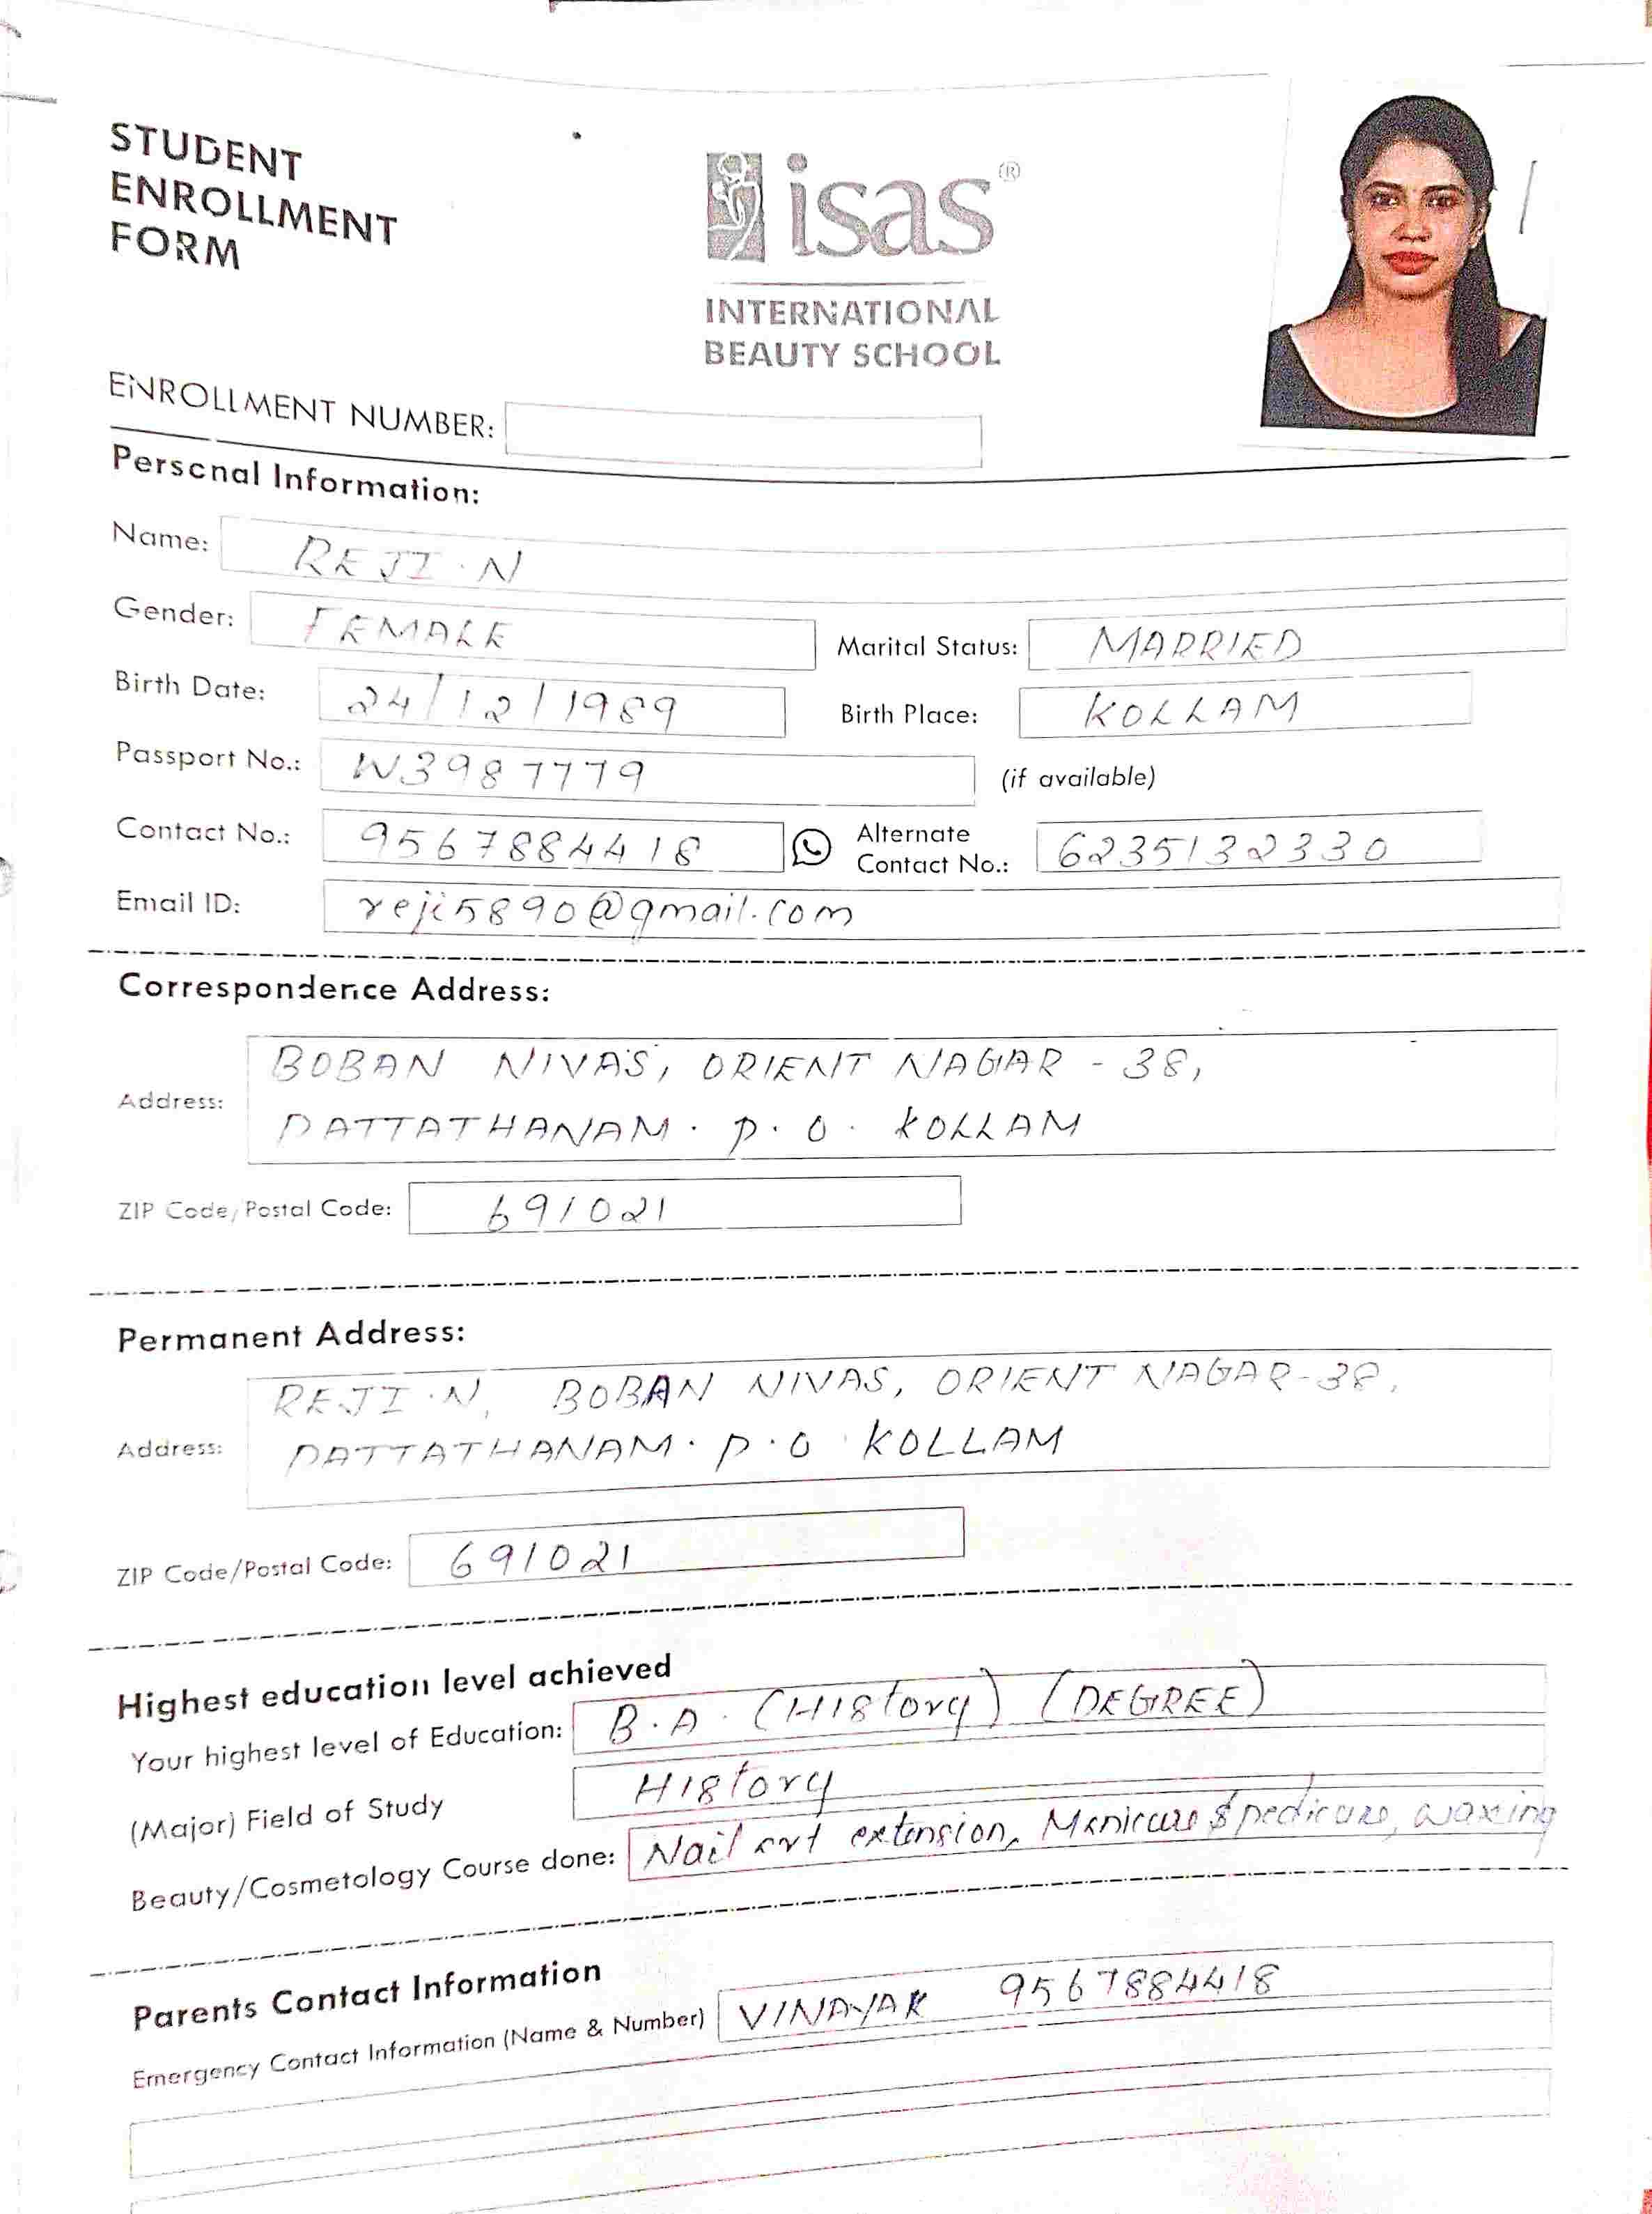 STUDENT
ENROLLMENT
FORM
isas®
INTERNATIONAL
BEAUTY SCHOOL
ENROLLMENT NUMBER:
Personal Information:
Name: REJI . N
Gender: FEMALE Marital Status: MARRIED
Birth Date: 24/12/1989 Birth Place: KOLLAM
Passport No.: W3987779 (if available)
Contact No.: 9567884418 Alternate Contact No.: 6235132330
Email ID: reji5890@gmail.com
Correspondence Address:
Address: BOBAN NIVAS, ORIENT NAGAR - 38,
PATTATHANAM . P. O. KOLLAM
ZIP Code/Postal Code: 691021
Permanent Address:
REJI . N, BOBAN NIVAS, ORIENT NAGAR-38,
Address: PATTATHANAM . P . O KOLLAM
ZIP Code/Postal Code: 691021
Highest education level achieved
Your highest level of Education: B.A. (HIStory) (DEGREE)
(Major) Field of Study HIStory
Beauty/Cosmetology Course done: Nail art extension, Manicure & pedicure, waxing
Parents Contact Information
Emergency Contact Information (Name & Number) VINAYAK 9567884418